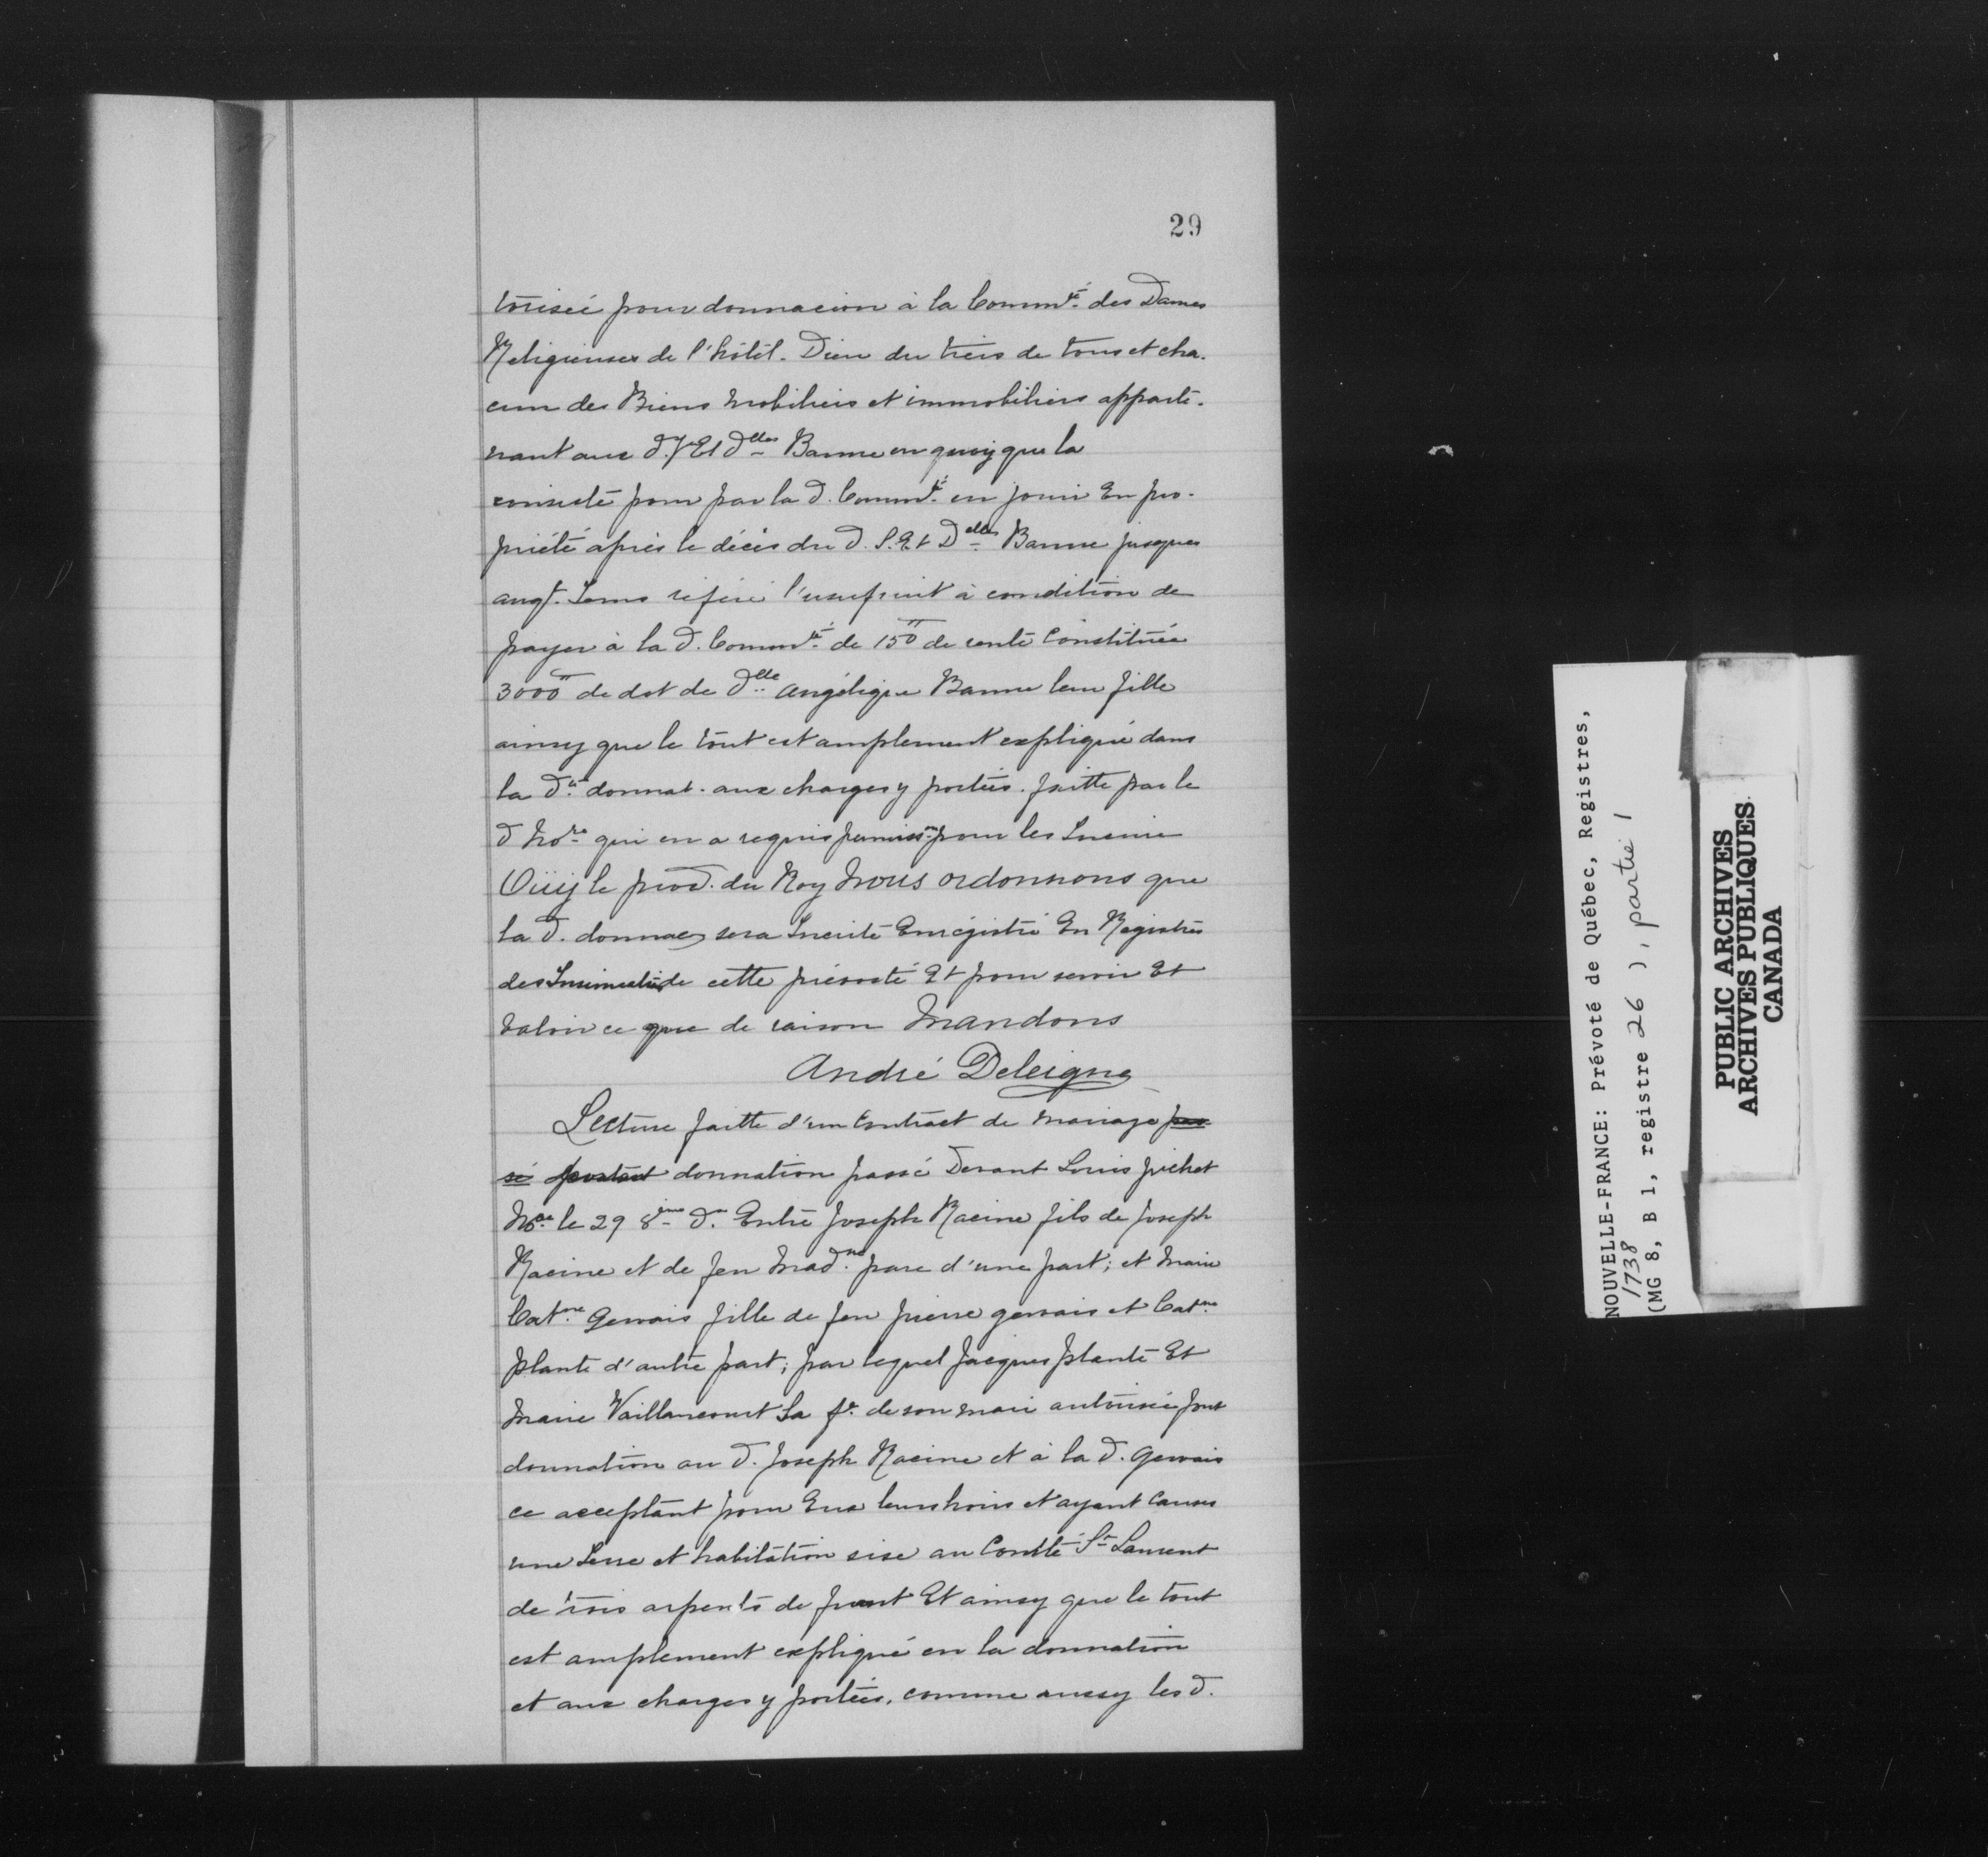 29
torisée pour donnacion à la Commté des Dames
Religieuses de l'hôtel-Dieu du tiers de tous et cha-
cun des Biens mobiliers et immobiliers apparte-
nant aux d. Et dlles Banne en quoy que la
consiste pour par la d. Commté en jouir En pro-
priété après le décès du d. S. Et Dlles Banne jusques
auqt. Tems l'usufruit à condition de
payer à la d. Commté de 150# de rente Constituée
3000# de dot de dlle angélique Banne leur fille
ainsy que le tout est amplement expliqué dans
la dte donnat. aux charges y portées. faitte par le
d Nore qui en a requis permisson pour les
Ouij le procr. du Roy Nous ordonnons que
la d. donnaon sera Enregistré En Registres
des de cette prévosté Et pour servir Et
Valoir ce que de raison Mandons
André Deleigne
Lecture faitte d'un Contract de mariage pas
sé portant donnation passé Devant Louis pichet
Nore le 29 8bre dr. Entre Joseph Racine fils de Joseph
Racine et de feu Madne pare d'une part; et Marie
Catne Gervais fille de feu pierre gervais et Catne
plante d'autre part; par lequel Jacques plante Et
Marie Vaillancourt Sa fe. de son mari autorisée font
donnation au d. Joseph Racine et à la d. Gervais
ce acceptant pour Eux leurs hoirs et ayant Causes
une Terre et habitation sise au Comté St Laurent
de trois arpents de front Et ainsy que le tout
est amplement expliqué en la donnation
et aux charges y portées, comme aussy les d.
NOUVELLE-FRANCE: Prévoté de Québec, Registres,
1738
(MG 8, B 1, registre 26 ), partie 1
PUBLIC ARCHIVES
ARCHIVES PUBLIQUES
CANADA